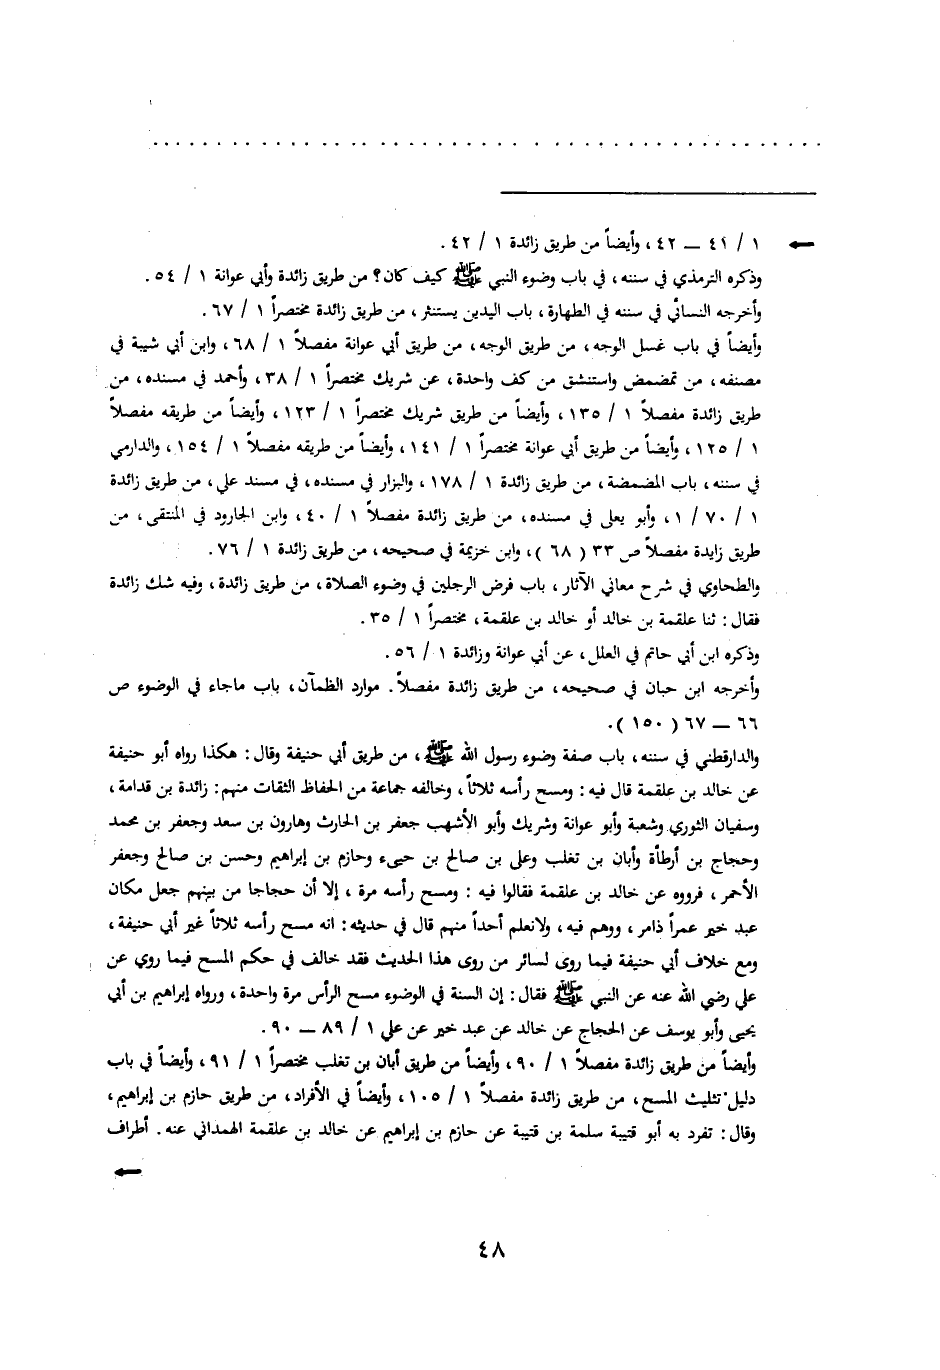 . . . . . . . . . . . . . . . . . . . . . . . . . . . . . . . .
← ١ / ٤١ ــ ٤٢ ، وأيضاً من طريق زائدة ١ / ٤٢ .
وذكره الترمذي في سننه ، في باب وضوء النبي ﷺ كيف كان؟ من طريق زائدة وأبي عوانة ١ / ٥٤ .
وأخرجه النسائي في سننه في الطهارة ، باب اليدين يستنثر ، من طريق زائدة مختصراً ١ / ٦٧ .
وأيضاً في باب غسل الوجه ، من طريق الوجه ، من طريق أبي عوانة مفصلاً ١ / ٦٨ ، وابن أبي شيبة في
مصنفه ، من تمضمض واستنشق من كف واحدة ، عن شريك مختصراً ١ / ٣٨ ، وأحمد في مسنده ، من
طريق زائدة مفصلاً ١ / ١٣٥ ، وأيضاً من طريق شريك مختصراً ١ / ١٢٣ ، وأيضاً من طريقه مفصلاً
١ / ١٢٥ ، وأيضاً من طريق أبي عوانة مختصراً ١ / ١٤١ ، وأيضاً من طريقه مفصلاً ١ / ١٥٤ ، والدارمي
في سننه ، باب المضمضة ، من طريق زائدة ١ / ١٧٨ ، والبزار في مسنده ، في مسند علي ، من طريق زائدة
١ / ٧٠ / ١ ، وأبو يعلى في مسنده ، من طريق زائدة مفصلاً ١ / ٤٠ ، وابن الجارود في المنتقى ، من
طريق زايدة مفصلاً ص ٣٣ ( ٦٨ ) ، وابن خزيمة في صحيحه ، من طريق زائدة ١ / ٧٦ .
والطحاوي في شرح معاني الآثار ، باب فرض الرجلين في وضوء الصلاة ، من طريق زائدة ، وفيه شك زائدة
فقال : ثنا علقمة بن خالد أو خالد بن علقمة ، مختصراً ١ / ٣٥ .
وذكره ابن أبي حاتم في العلل ، عن أبي عوانة وزائدة ١ / ٥٦ .
وأخرجه ابن حبان في صحيحه ، من طريق زائدة مفصلاً . موارد الظمآن ، باب ماجاء في الوضوء ص
٦٦ ــ ٦٧ ( ١٥٠ ) .
والدارقطني في سننه ، باب صفة وضوء رسول الله ﷺ ، من طريق أبي حنيفة وقال : هكذا رواه أبو حنيفة
عن خالد بن علقمة قال فيه : ومسح رأسه ثلاثاً ، وخالفه جماعة من الحفاظ الثقات منهم : زائدة بن قدامة ،
وسفيان الثوري وشعبة وأبو عوانة وشريك وأبو الأشهب جعفر بن الحارث وهارون بن سعد وجعفر بن محمد
وحجاج بن أرطأة وأبان بن تغلب وعلى بن صالح بن حيىء وحازم بن إبراهيم وحسن بن صالح وجعفر
الأحمر ، فرووه عن خالد بن علقمة فقالوا فيه : ومسح رأسه مرة ، إلا أن حجاجا من بينهم جعل مكان
عبد خير عمراً ذامر ، ووهم فيه ، ولانعلم أحداً منهم قال في حديثه : انه مسح رأسه ثلاثاً غير أبي حنيفة ،
ومع خلاف أبي حنيفة فيما روى لسائر من روى هذا الحديث فقد خالف في حكم المسح فيما روي عن
علي رضي الله عنه عن النبي ﷺ فقال : إن السنة في الوضوء مسح الرأس مرة واحدة ، ورواه إبراهيم بن أبي
يحيى وأبو يوسف عن الحجاج عن خالد عن عبد خير عن علي ١ / ٨٩ ــ ٩٠ .
وأيضاً من طريق زائدة مفصلاً ١ / ٩٠ ، وأيضاً من طريق أبان بن تغلب مختصراً ١ / ٩١ ، وأيضاً في باب
دليل تثليث المسح ، من طريق زائدة مفصلاً ١ / ١٠٥ ، وأيضاً في الأفراد ، من طريق حازم بن إبراهيم ،
وقال : تفرد به أبو قتيبة سلمة بن قتيبة عن حازم بن إبراهيم عن خالد بن علقمة الهمداني عنه . أطراف
←
٤٨